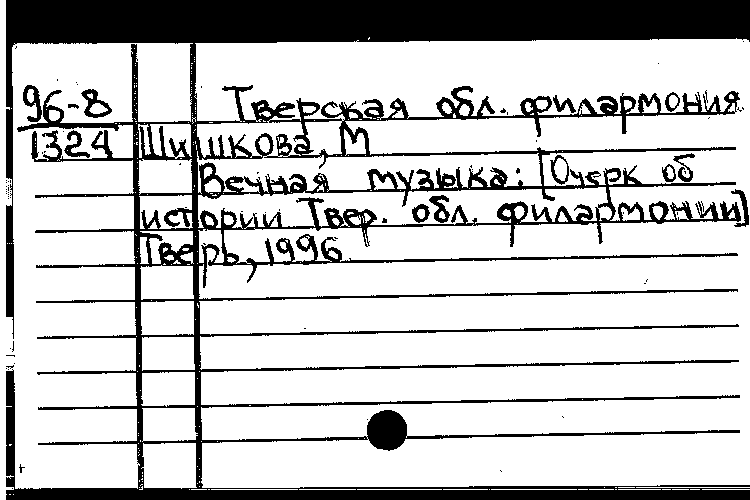 96-8 Тверская обл. филармония
1324 Шишкова, М
Вечная музыка: [Очерк об
истории Твер. обл. филармонии]
Тверь, 1996